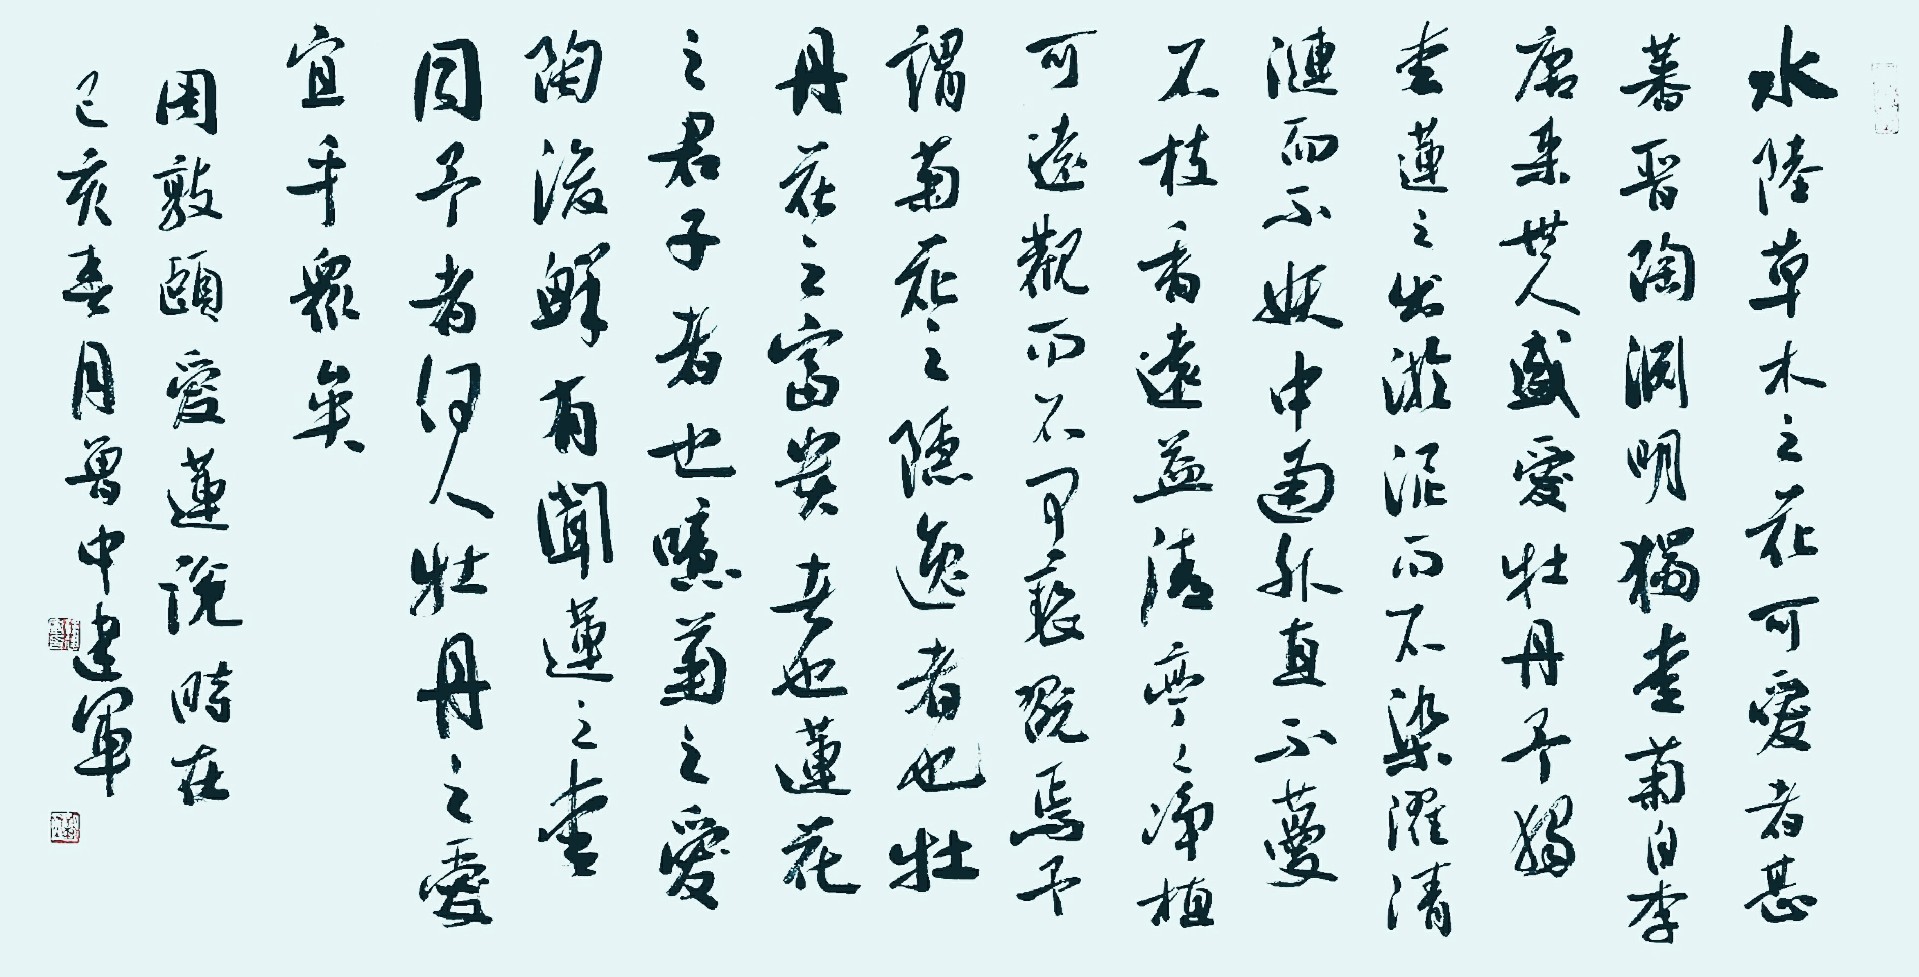 水陸草木之花可愛者甚
蕃晋陶渊明獨愛菊自李
唐来世人盛愛牡丹予獨
愛蓮之出淤泥而不染濯清
漣而不妖中通外直不蔓
不枝香遠益清亭々淨植
可遠觀而不可褻翫焉予
謂菊花之隱逸者也牡
丹花之富貴者也蓮花
之君子者也噫菊之愛
陶後鮮有聞蓮之愛
同予者何人牡丹之愛
宜乎衆矣
周敦頤愛蓮說時在
己亥春月魯中建軍